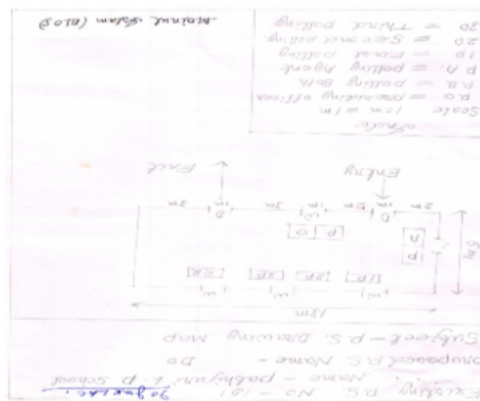 Existing P.S. No - 151
Name - pathijuri L.P. School
proposed P.S. Name - Do
Subject - P.S. Drawing Map
13m
W W W
1P 2P 3P
6m
P
A
P O
D W D
2m 1m 2m 1m 3m 1m 3m
Entry Exit
Index
Scale 1cm = 1m
P.O = presiding officer
P.B = polling Both
P.A. = polling Agent
1P = First polling
2P = Second polling
3P = Third polling
Mainul Islam (BLO)